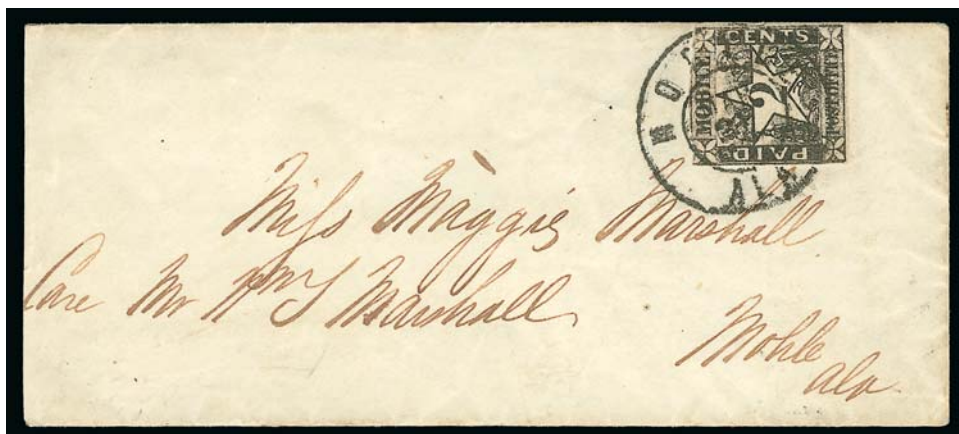 CENTS
MOBILE 2 POST OFFICE
PAID
MO
Miss Maggie Marshall
Care Mr Wm S Marshall
Mobile
Ala